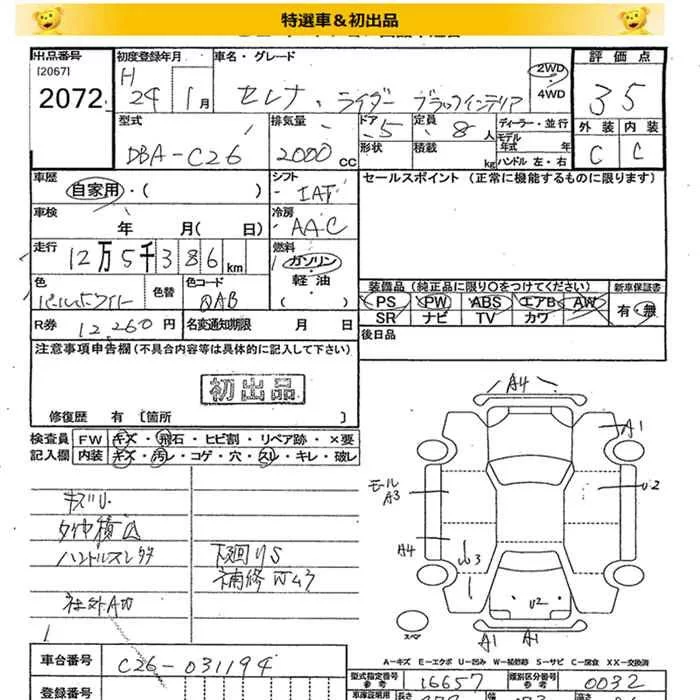 特選車＆初出品
出品番号
[2067]
2072
初度登録年月
H
24 1月
車名・グレード
セレナ ライダー ブラックインテリア
2WD
4WD
評価点
3 5
外装 内装
C C
型式
DBA-C26
排気量
2000 cc
ドア
5
定員
8人
形状
積載
kg
ディーラー・並行
モデル
年式 年
ハンドル 左・右
車歴
自家用・( )
シフト
IAT
セールスポイント（正常に機能するものに限ります）
車検
年 月( 日)
冷房
AAC
走行
12万5千386km
燃料
ガソリン
軽油
( )
色
パールホワイト
色替
色コード
QAB
装備品（純正品に限り○をつけてください）
PS PW ABS エアB AW
SR ナビ TV カワ
新車保証書
有・無
R券 12,260円
名変通知期限 月 日
後日品
注意事項申告欄（不具合内容等は具体的に記入して下さい）
初出品
修復歴 有 [箇所 ]
検査員 FW キズ・飛石・ヒビ割・リペア跡・×要
記入欄 内装 キズ・汚レ・コゲ・穴・スレ・キレ・破レ
キズU
ハンドルスレ
下廻りS
補修Wムラ
社外AW
A4
A1
モール
A3
U2
A4
U3
U2
スペア
A1 A1
A-キズ E-エクボ U-凹み W-補修跡 S-サビ C-腐食 XX-交換済
車台番号
C26-031194
型式指定番号
参考
16657
類別区分番号
参考
0032
登録番号
車庫証明用
長さ
幅
高さ